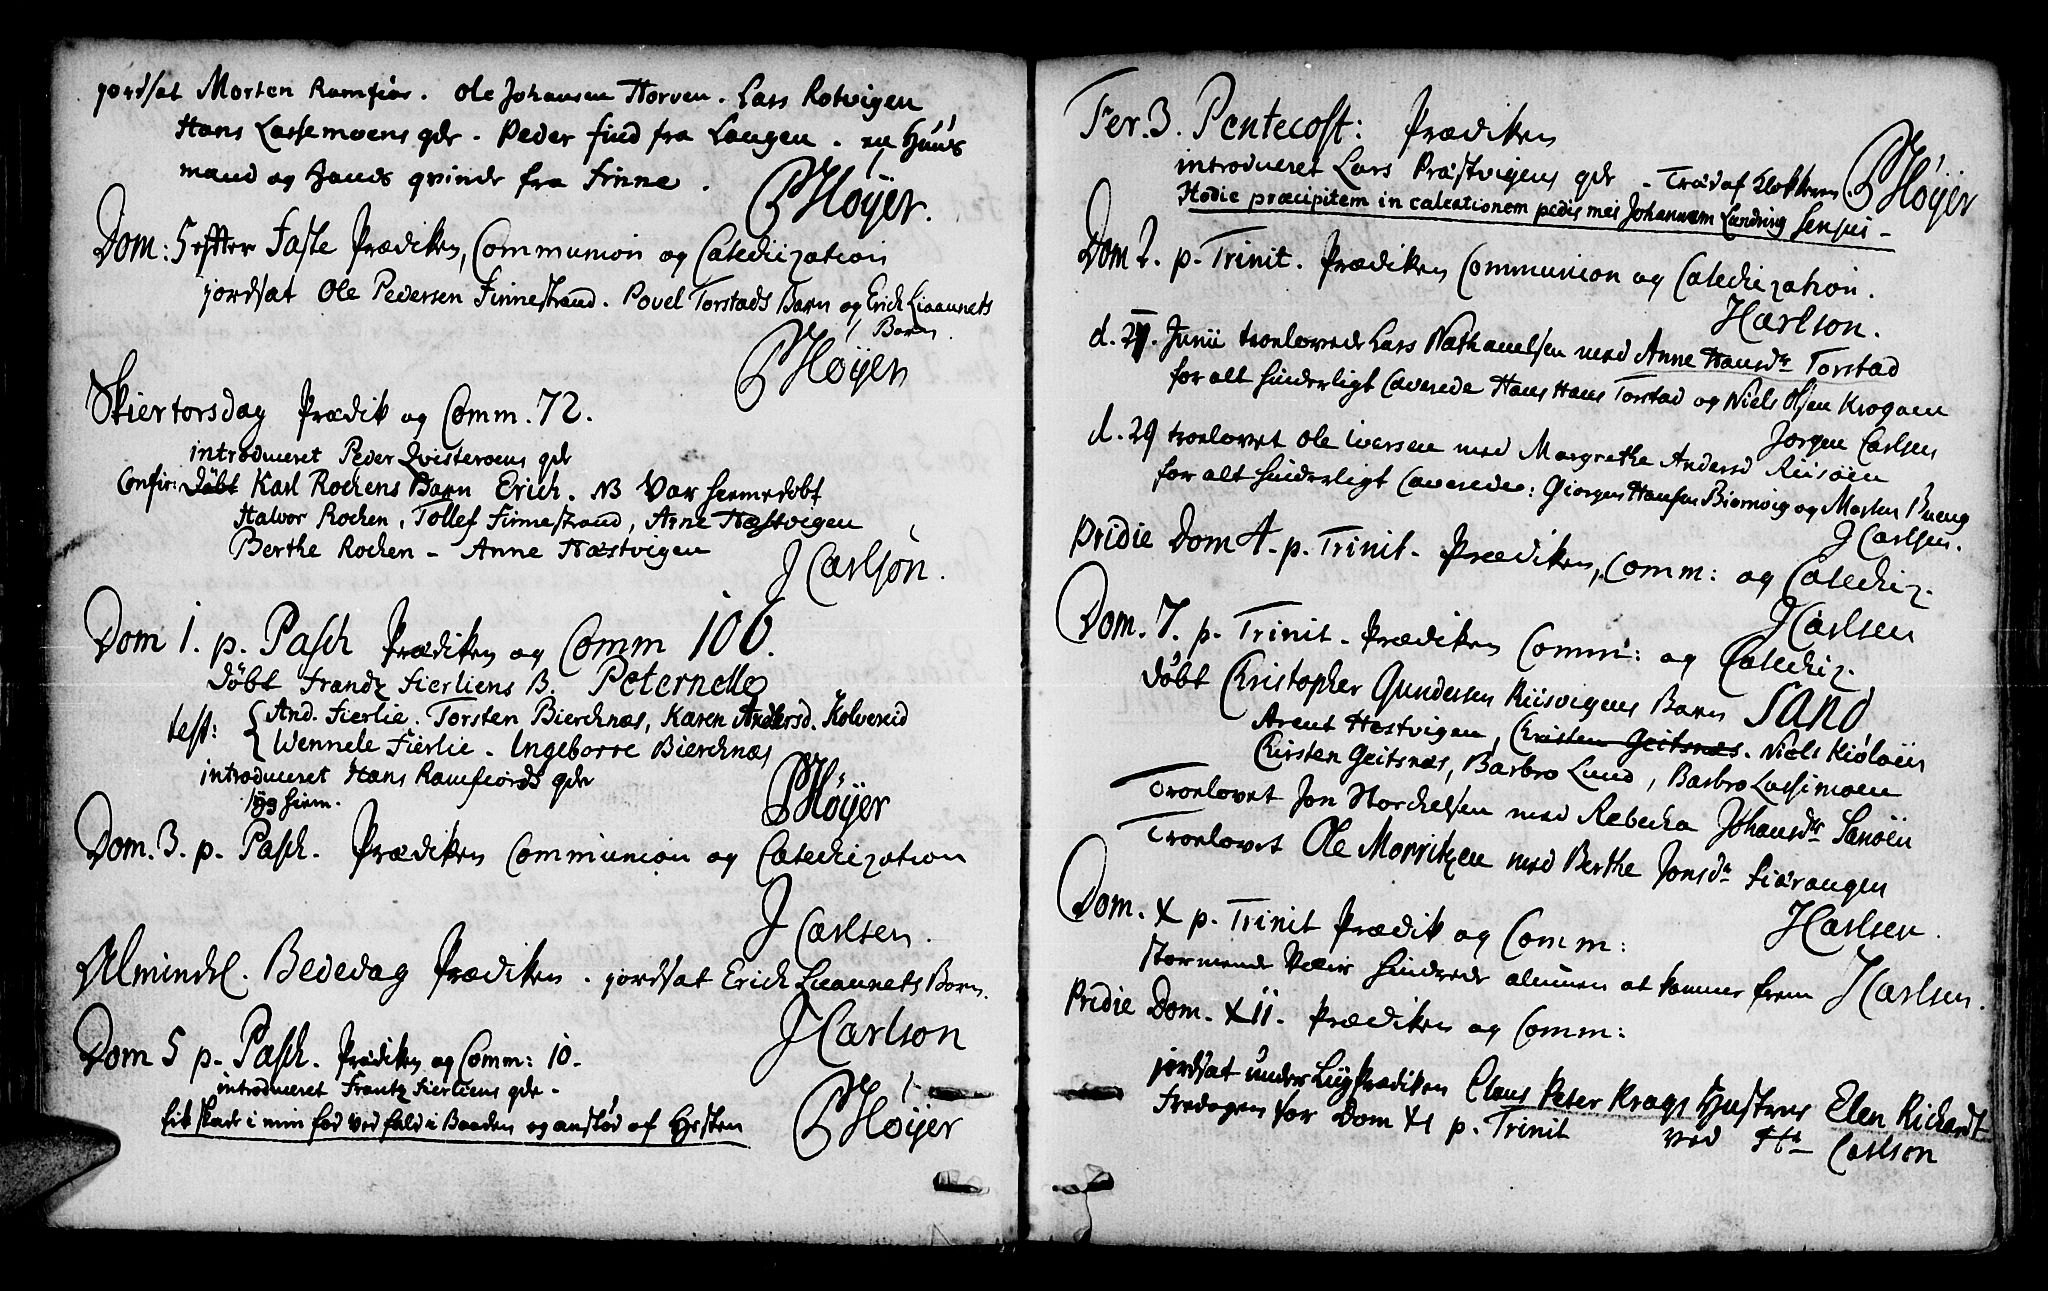 jordsat Morten Ramfiør. Ole Johansen Horven. Lars Rotvigen
Hans Lassemoens qdr. Peder find fra Langen. en Huus
mand og Hands qvinde fra Finne.
PHøÿer.
Dom: 5 effter Faste Prædiken, Communion og Catechization
jordsat Ole Pedersen Finnestrand. Povel Torstads Barn og Erich Liaannets
Barn.
PHøÿer
Skiertorsdag Prædik og Comm. 72.
introduceret Peder Qvisteroens qdr
Confir: Døbt Karl Rochens Barn Erich. NB var hiemedøbt
Halvor Rochen, Tollef Finnestrand, Arne Næstvigen
Berthe Rochen - Anne Næstvigen
J Carlson.
Dom 1. p. Pasch Prædiken og Comm 106.
Døbt Frandz Fierliens B. Peternelle
test: And. Fierlie. Torsten Bierchnæs, Karen Andersd. Kolvereid
Wennele Fierlie. Ingeborre Bierchnæs
introduceret Hans Ramfiords qdr
syg hiem.
PHøÿer
Dom. 3. p. Pasch. Prædiken Communion og Catechization
J Carlsen.
Almindel. Bededag Prædiken. jordsat Erich Liaannets Barn.
J Carlson
Dom 5 p. Pasch. Prædiken og Comm: 10.
introduceret Frantz Fierliens qdr.
fik skade i min fod ved fald i Baaden og anstød af Hesten
PHøÿer
Fer. 3. Pentecost: Prædiken
introduceret Lars Præstvigens qdr - Træd af Klokkeren
PHøÿer
Hodie præcipitem in calcationem pedis mei Johannem Lundring sensui -
Dom 2. p. Trinit. Prædiken Communion og Catechization.
J Carlson.
d. 21. Junii troelovede Lars Nathanelsen med Anne Hansdr Torstad
for alt hinderligt Caverede Hans Hans Torstad og Niels Olsen Krogøen
Jørgen Carlsen
d. 29 troelovet Ole Iversen med Margrethe Andersd Riisøen
for alt hinderligt Caverede: Giørgen Hansen Biørnvig og Morten
J Carlsen.
Pridie Dom 4. p. Trinit. Prædiken, Comm: og Catechiz.
J Carlsen
Dom. 7. p. Trinit. Prædiken Comm: og Catechiz.
Døbt Christopher Gundersen Riisvigens Barn SAND
Arent Hestvigen, Christen Geitsnæs. Niels Kiøløen
Kirsten Geitsnæs, Barbro Lund, Barbro Lassimoen
Troelovet Jon Storchelsen med Rebecha Johansdr Sanøen
Troelovet Ole Morritzen med Berthe Jonsdr Fiærangen
J Carlsen.
Dom. X p. Trinit Prædik og Comm:
stormende Væir hindrede almuen at komme frem
J Carlsen.
Pridie Dom. XII. Prædiken og Comm:
jordsat under Liigprædiken Claus Peter Krags Hustrue Elen Richardt
Fredagen for Dom XI p. Trinit ved Hr Carlson